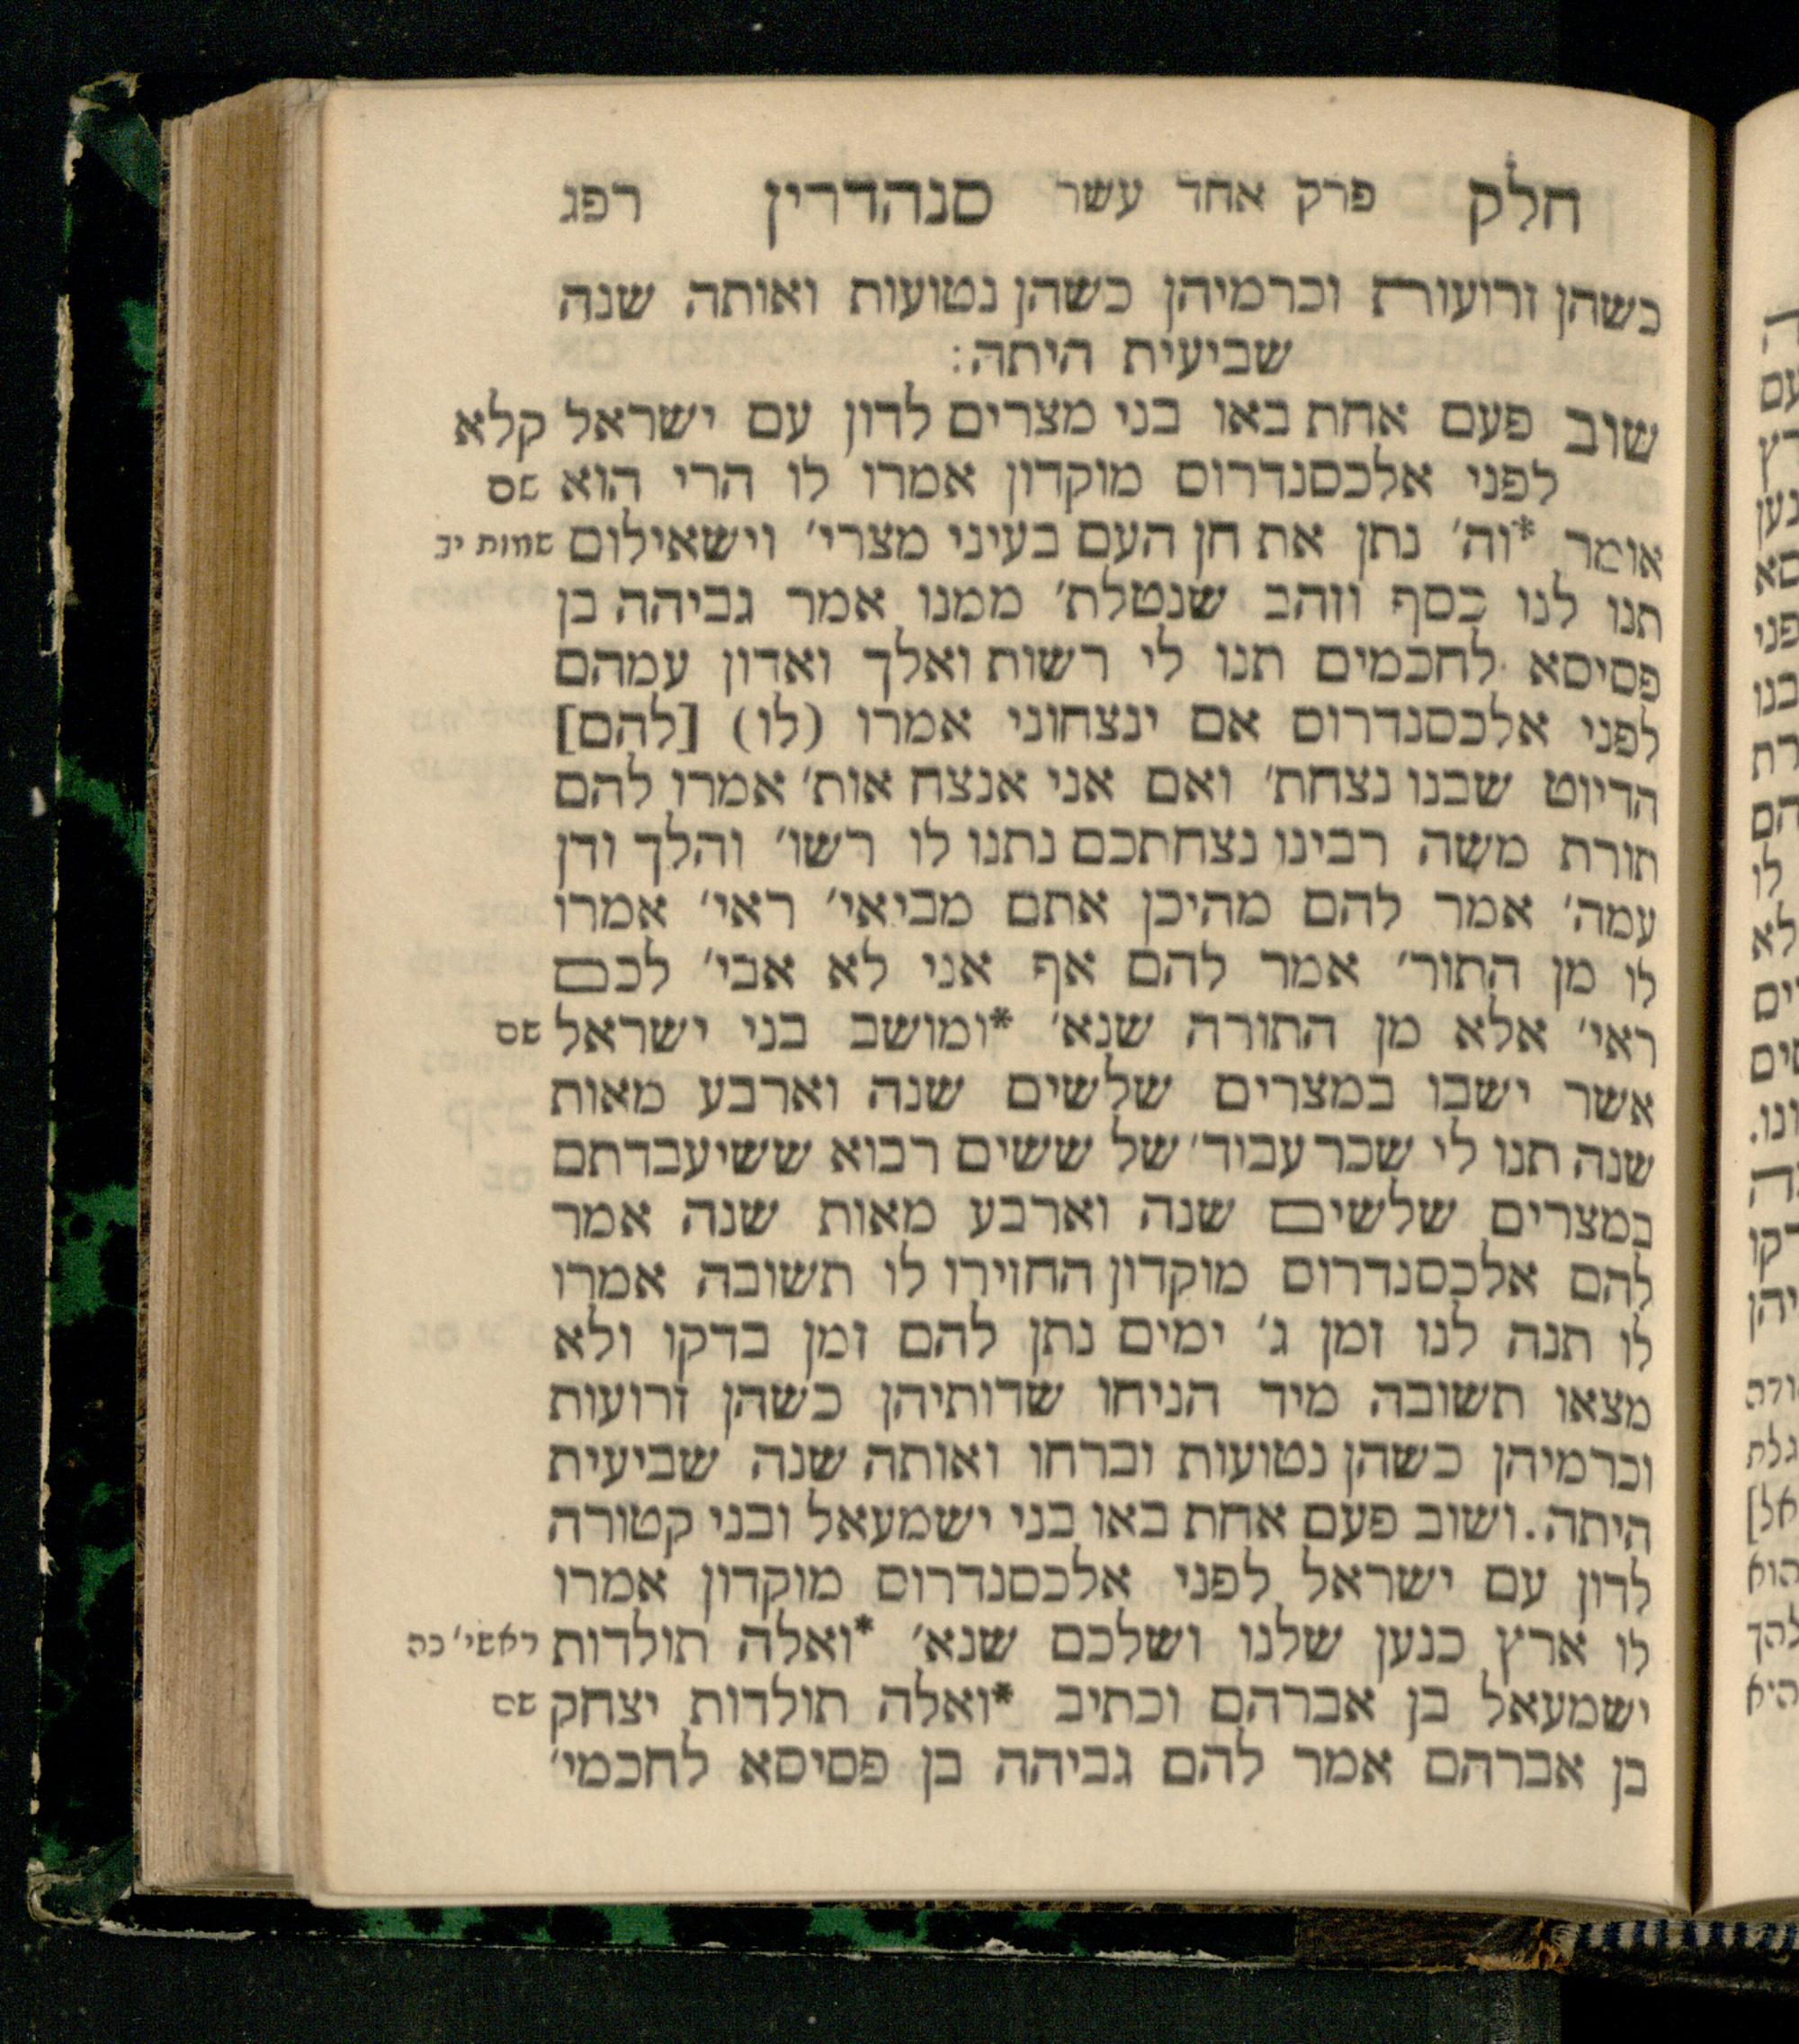 חלק פרק אחד עשר סנהדרין רפג
כשהן זרועות וכרמיהן כשהן נטועות ואותה שנה
שביעית היתה:
שוב פעם אחת באו בני מצרים לדון עם ישראל קלא
לפני אלכסנדרוס מוקדון אמרו לו הרי הוא שם
אומר *וה׳ נתן את חן העם בעיני מצרי׳ וישאילום שמות יב
תנו לנו כסף וזהב שנטלת׳ ממנו אמר גביהה בן
פסיסא לחכמים תנו לי רשות ואלך ואדון עמהם
לפני אלכסנדרוס אם ינצחוני אמרו (לו) [להם]
הדיוט שבנו נצחת׳ ואם אני אנצח אות׳ אמרו להם
תורת משה רבינו נצחתכם נתנו לו רשו׳ והלך ודן
עמה׳ אמר להם מהיכן אתם מביאי׳ ראי׳ אמרו
לו מן התור׳ אמר להם אף אני לא אבי׳ לכם
ראי׳ אלא מן התורה שנא׳ *ומושב בני ישראל שם
אשר ישבו במצרים שלשים שנה וארבע מאות
שנה תנו לי שכר עבוד׳ של ששים רבוא ששיעבדתם
במצרים שלשים שנה וארבע מאות שנה אמר
להם אלכסנדרוס מוקדון החזירו לו תשובה אמרו
לו תנה לנו זמן ג׳ ימים נתן להם זמן בדקו ולא
מצאו תשובה מיד הניחו שדותיהן כשהן זרועות
וכרמיהן כשהן נטועות וברחו ואותה שנה שביעית
היתה. ושוב פעם אחת באו בני ישמעאל ובני קטורה
לדון עם ישראל לפני אלכסנדרוס מוקדון אמרו
לו ארץ כנען שלנו ושלכם שנא׳ *ואלה תולדות ראשי׳ כה
ישמעאל בן אברהם וכתיב *ואלה תולדות יצחק שם
בן אברהם אמר להם גביהה בן פסיסא לחכמי׳